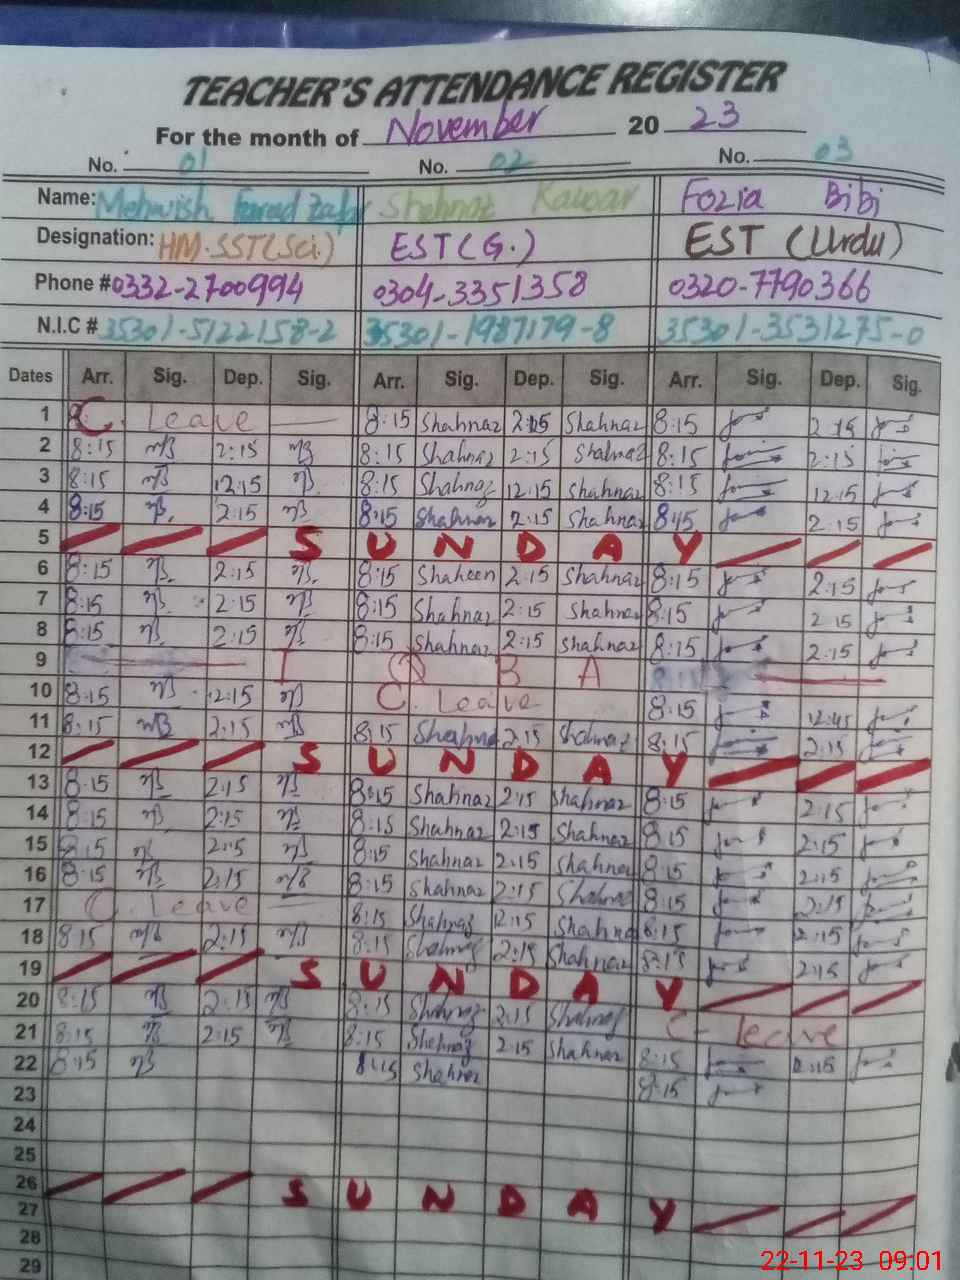 TEACHER'S ATTENDANCE REGISTER
For the month of November 20 23
No. 01 No. 02 No. 03
Name: Mehwish Zafar Shehnaz Kausar Fozia BiBi
Designation: HM.SST(Sci.) EST(G.) EST (Urdu)
Phone # 0332-2700994 0304-3351358 0320-7790366
N.I.C # 35301-5122158-2 35301-1987179-8 35301-3531275-0
Dates Arr. Sig. Dep. Sig. Arr. Sig. Dep. Sig. Arr. Sig. Dep. Sig.
1 C. Leave 8:15 Shahnaz 2:15 Shahnaz 8:15 2:15
2 8:15 2:15 8:15 Shahnaz 2:15 Shahnaz 8:15 2:15
3 8:15 12:15 8:15 Shahnaz 12:15 Shahnaz 8:15 12:15
4 8:15 2:15 8:15 Shahnaz 2:15 Shahnaz 8:15 2:15
5 S U N D A Y
6 8:15 2:15 8:15 Shaheen 2:15 Shahnaz 8:15 2:15
7 8:15 2:15 8:15 Shahnaz 2:15 Shahnaz 8:15 2:15
8 8:15 2:15 8:15 Shahnaz 2:15 Shahnaz 8:15 2:15
9 I Q B A
10 8:15 12:15 C. Leave 8:15 12:45
11 8:15 2:15 8:15 Shahnaz 2:15 Shahnaz 8:15 2:15
12 S U N D A Y
13 8:15 2:15 8:15 Shahnaz 2:15 Shahnaz 8:15 2:15
14 8:15 2:15 8:15 Shahnaz 2:15 Shahnaz 8:15 2:15
15 8:15 2:15 8:15 Shahnaz 2:15 Shahnaz 8:15 2:15
16 8:15 2:15 8:15 Shahnaz 2:15 Shahnaz 8:15 2:15
17 C. Leave 8:15 Shahnaz 12:15 Shahnaz 8:15 2:15
18 8:15 2:15 8:15 Shahnaz 2:15 Shahnaz 8:15 2:15
19 S U N D A Y
20 8:15 2:15 8:15 Shahnaz 2:15 Shahnaz C- leave
21 8:15 2:15 8:15 Shehnaz 2:15 Shahnaz 8:15 2:15
22 8:15 8:15 Shahnaz 8:15
23
24
25
26 S U N D A Y
27
28
29
22-11-23 09:01